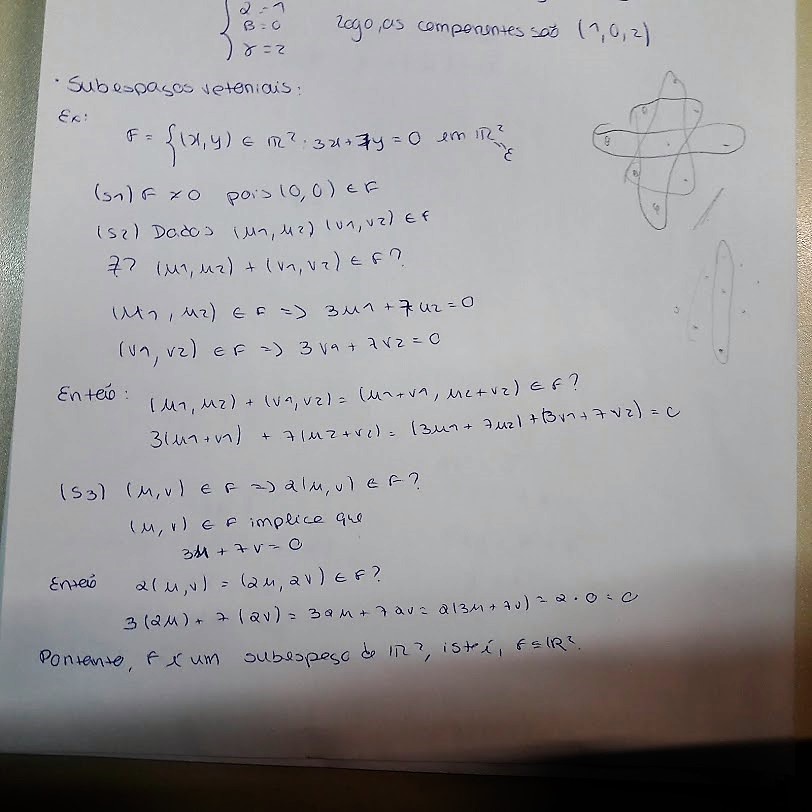 α = 1
β = 0 Logo, as componentes são (1, 0, 2)
γ = 2
· Subespaços vetoriais:
Ex:
F = {(x, y) ∈ ℝ² : 3x + 7y = 0 em ℝ²
(S1) F ≠ 0 pois (0, 0) ∈ F
(S2) Dados (u1, u2) (v1, v2) ∈ F
7? (u1, u2) + (v1, v2) ∈ F?
(u1, u2) ∈ F => 3u1 + 7u2 = 0
(v1, v2) ∈ F => 3v1 + 7v2 = 0
Então: (u1, u2) + (v1, v2) = (u1 + v1, u2 + v2) ∈ F?
3(u1 + v1) + 7(u2 + v2) = (3u1 + 7u2) + (3v1 + 7v2) = 0
(S3) (u, v) ∈ F => α(u, v) ∈ F?
(u, v) ∈ F implica que
3u + 7v = 0
Então α(u, v) = (αu, αv) ∈ F?
3(αu) + 7(αv) = 3αu + 7αv = α(3u + 7v) = α · 0 = 0
Portanto, F é um subespaço de ℝ², isto é, F ⊆ ℝ².